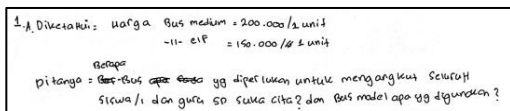 1.A Diketahui: Harga Bus medium = 200.000/1 unit
-11- elf = 150.000/1 unit
Berapa
Ditanya = Bus yg diperlukan untuk mengangkut seluruh
siswa/i dan guru SD suka cita? dan Bus model apa yg digunakan?